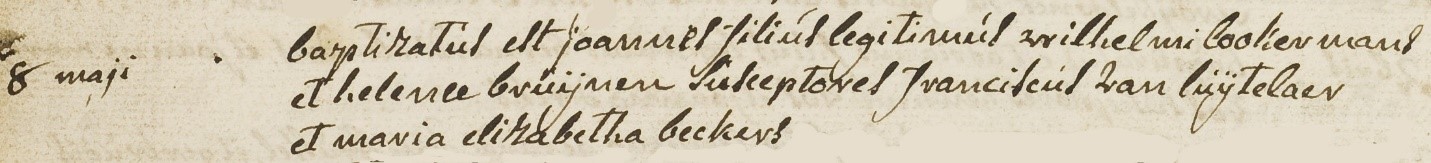 baptizatus est joannes filius legitimus wilhelmi cookermans
8 maji et helenæ bruijnen susceptores franciscus van luÿtelaer
et maria elizabetha beckers